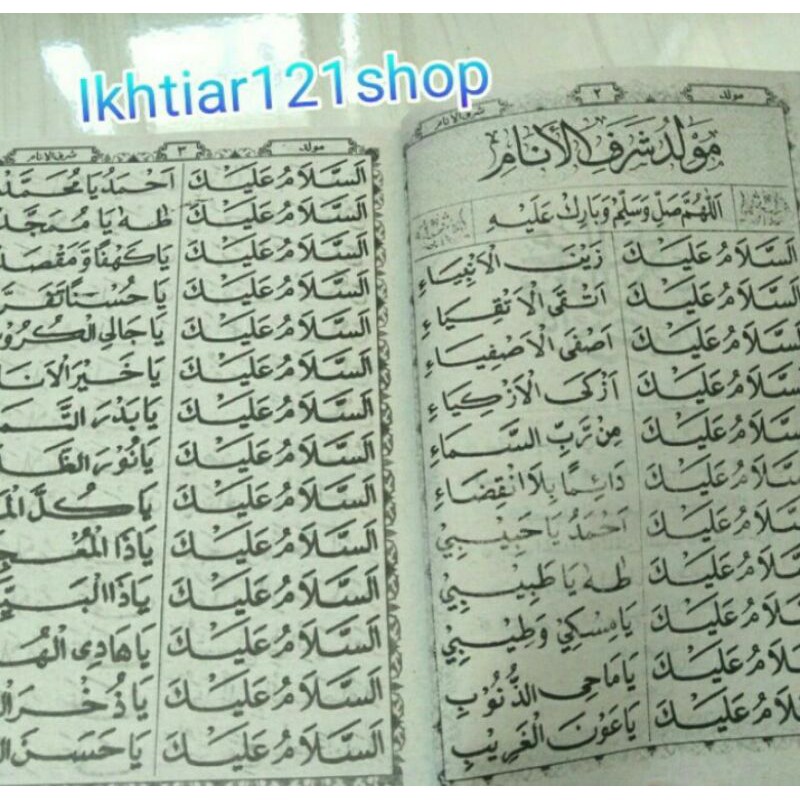 Ikhtiar121shop
مولد ٢ شرف الأنام
مَوْلِدُ شَرَفِ الْأَنَامِ
اَللّٰهُمَّ صَلِّ وَسَلِّمْ وَبَارِكْ عَلَيْهِ
اَلسَّلَامُ عَلَيْكَ زَيْنَ الْاَنْبِيَاءِ
اَلسَّلَامُ عَلَيْكَ اَتْقَى الْاَتْقِيَاءِ
اَلسَّلَامُ عَلَيْكَ اَصْفَى الْاَصْفِيَاءِ
اَلسَّلَامُ عَلَيْكَ اَزْكَى الْاَزْكِيَاءِ
اَلسَّلَامُ عَلَيْكَ مِنْ رَبِّ السَّمَاءِ
اَلسَّلَامُ عَلَيْكَ دَائِمًا بِلَا انْقِضَاءِ
اَلسَّلَامُ عَلَيْكَ اَحْمَدُ يَا حَبِيْبِيْ
السَّلَامُ عَلَيْكَ طٰهٰ يَا طَبِيْبِيْ
السَّلَامُ عَلَيْكَ يَا مِسْكِيْ وَطِيْبِيْ
السَّلَامُ عَلَيْكَ يَا مَاحِى الذُّنُوْبِ
السَّلَامُ عَلَيْكَ يَا عَوْنَ الْغَرِيْبِ
مولد ٣ شرف الأنام
اَلسَّلَامُ عَلَيْكَ اَحْمَدُ يَا مُحَمَّدُ
اَلسَّلَامُ عَلَيْكَ طٰهٰ يَا مُمَجَّدُ
اَلسَّلَامُ عَلَيْكَ يَا كَهْفًا وَّمَقْصَدْ
اَلسَّلَامُ عَلَيْكَ يَا حُسْنًا تَفَرَّ
اَلسَّلَامُ عَلَيْكَ يَا جَالِى الْكُرُوْ
اَلسَّلَامُ عَلَيْكَ يَا خَيْرَ الْاَنَا
اَلسَّلَامُ عَلَيْكَ يَا بَدْرَ التَّمَا
اَلسَّلَامُ عَلَيْكَ يَا نُوْرَ الظَّلَا
اَلسَّلَامُ عَلَيْكَ يَا كُلَّ الْمَ
اَلسَّلَامُ عَلَيْكَ يَا ذَا الْمُعْجِ
اَلسَّلَامُ عَلَيْكَ يَا ذَا الْبَيِّ
اَلسَّلَامُ عَلَيْكَ يَا هَادِى الْهُ
اَلسَّلَامُ عَلَيْكَ يَا ذُخْرَ الْ
اَلسَّلَامُ عَلَيْكَ يَا حَسَنَ الْ